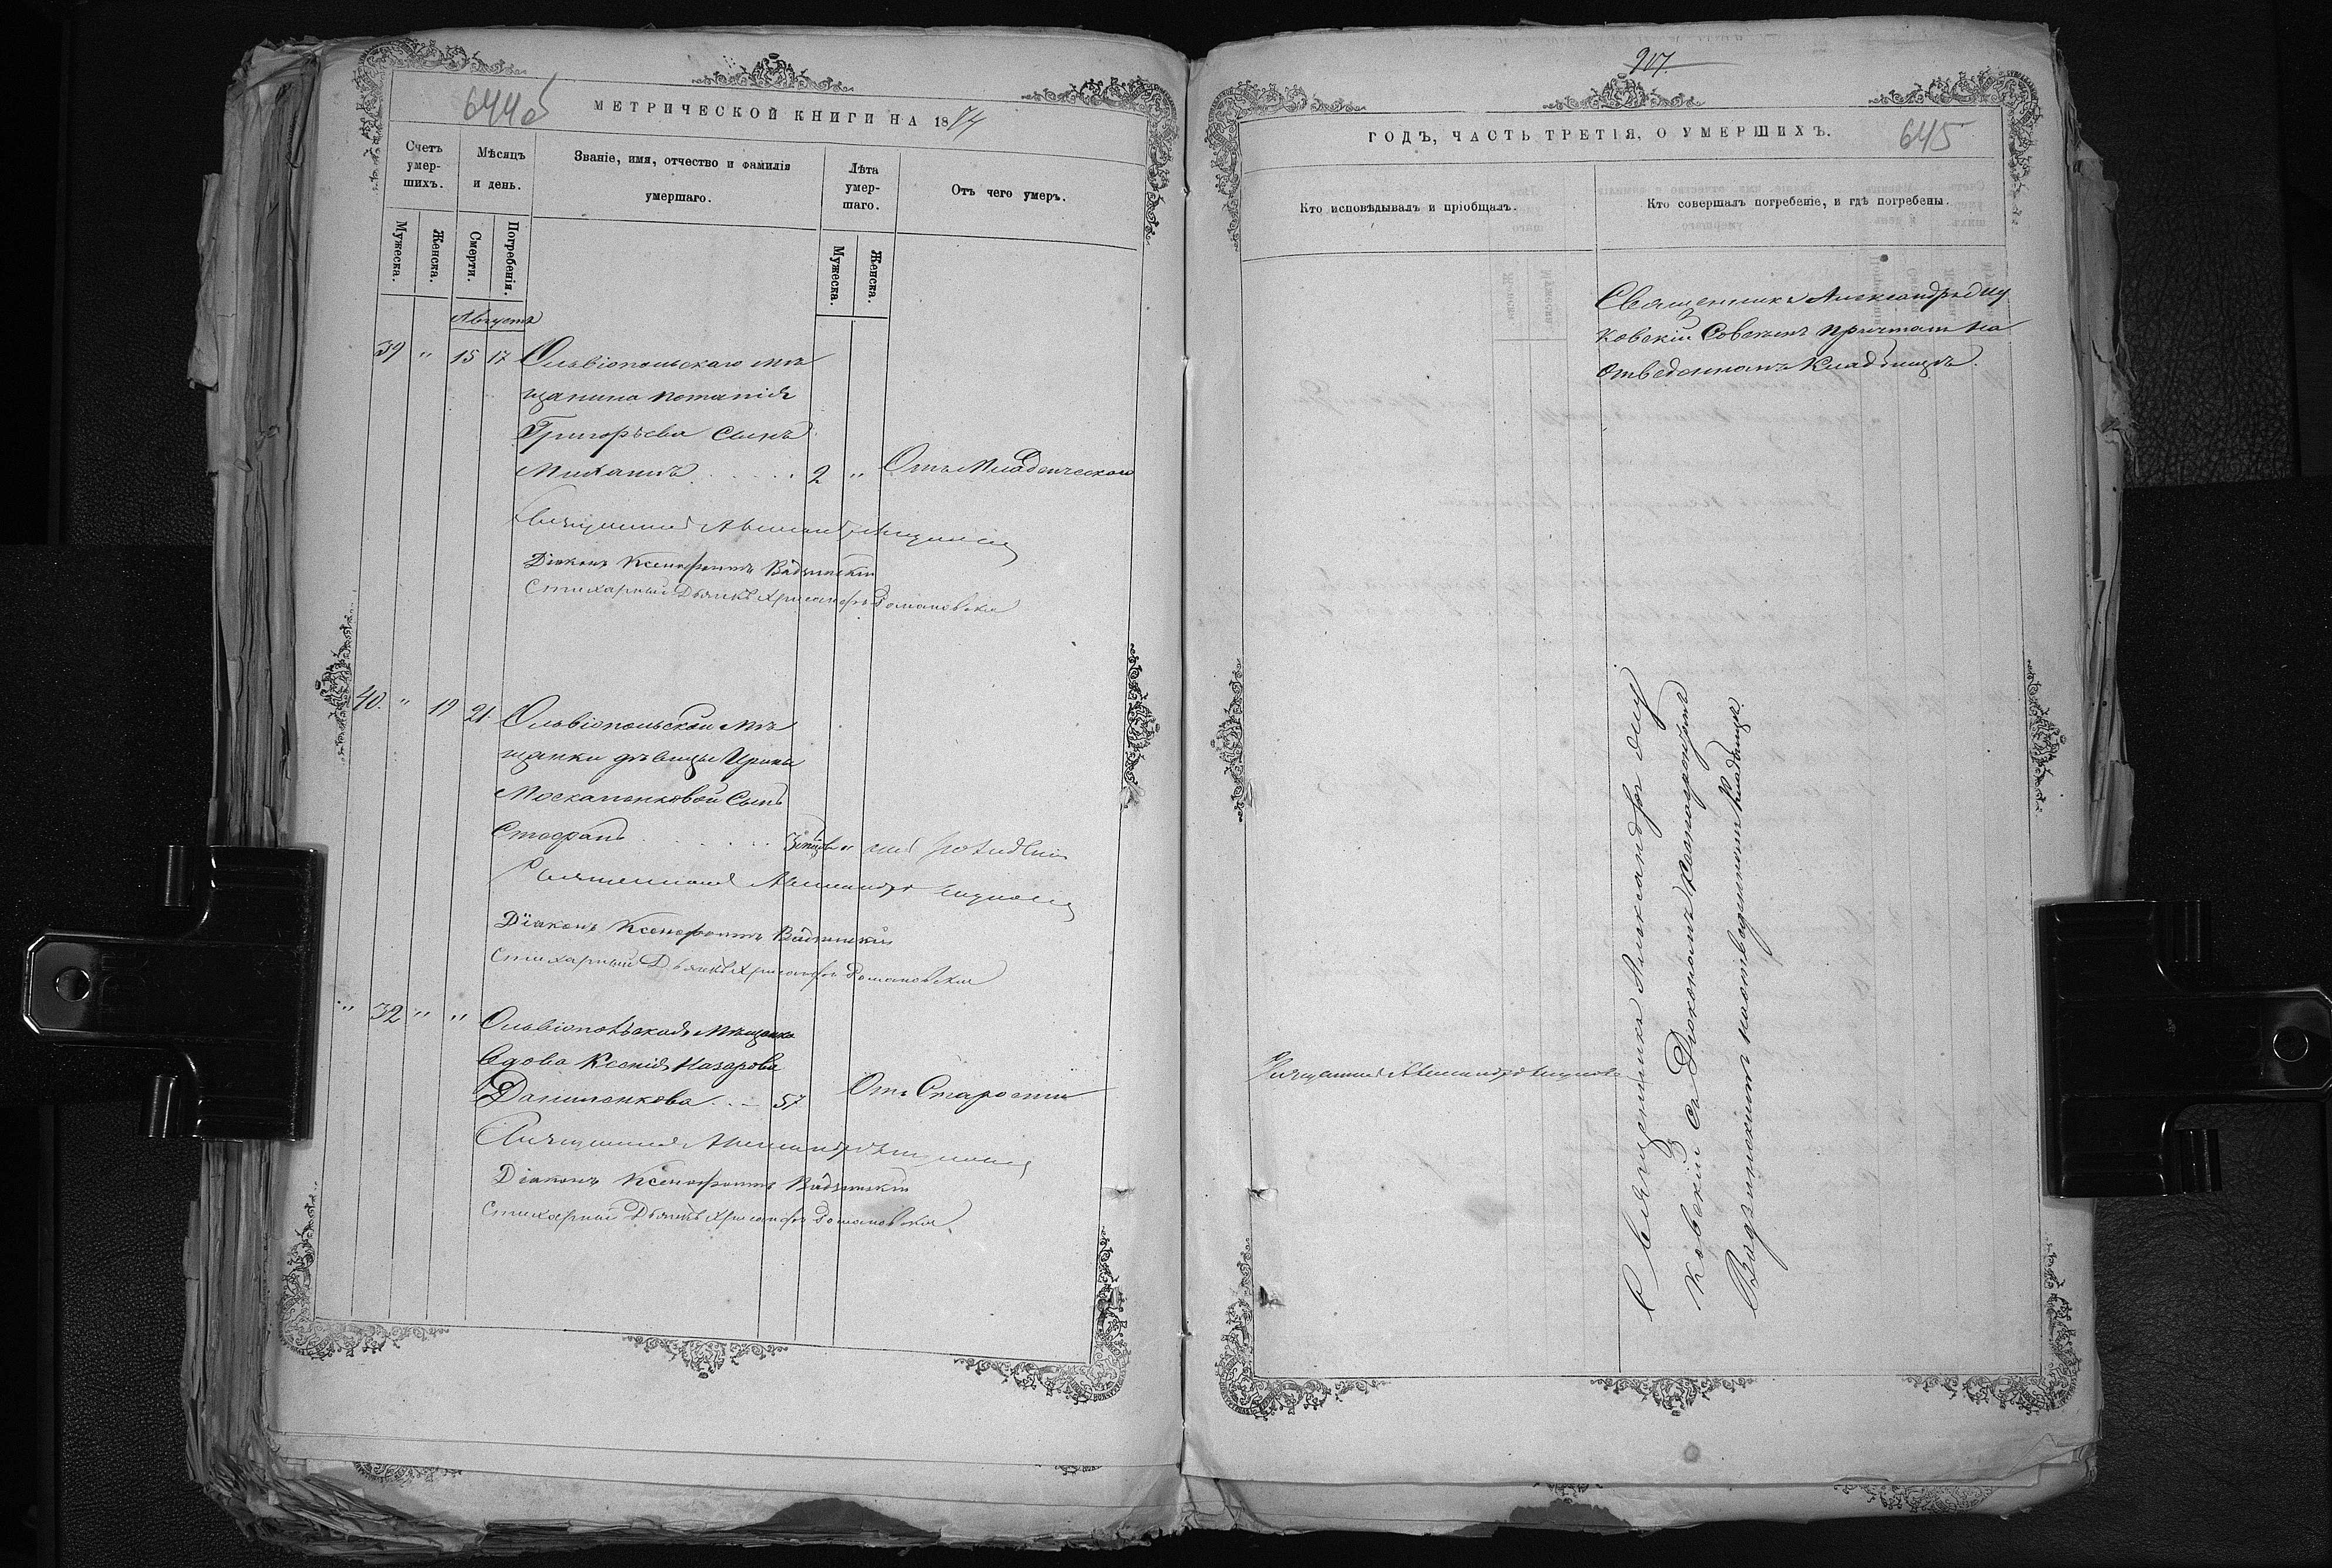 644об
МЕТРИЧЕСКОЙ КНИГИ НА 1874
Счетъ умер-шихъ.
Мѣсяцъ и день.
Званіе, имя, отчество и фамилія умершаго.
Лѣта умер-шаго.
Отъ чего умеръ.
Мужеска.
Женска.
Смерти.
Погребенія.
Мужеска.
Женска.
Августа
39 " 15 17 Ольвіопольскаго мѣ
щанина Потапія
Григорьева Сынъ
Михаилъ 2 " Отъ Младенческой
Священникъ Александръ
Діаконъ Ксенофонтъ Вадзинскій
Стихарный Дьячекъ Хрисанфъ Романовскій
40. " 19 21. Ольвіопольской мѣ
щанки дѣвицы Ирины
Москаленковой Сынъ
Стефанъ
Священникъ Александръ
Діаконъ Ксенофонтъ Вадзинскій
Стихарный Дьячекъ Хрисанфъ Романовскій
" 32 " " Ольвіопольская Мѣщанка
Вдова Ксенія Назарова
Даниленкова 57 Отъ Старости
Священникъ Александръ
Діаконъ Ксенофонтъ Вадзинскій
Стихарный Дьячекъ Хрисанфъ Романовскій
917.
ГОДЪ, ЧАСТЬ ТРЕТІЯ, О УМЕРШИХЪ.
645
Кто исповѣдывалъ и пріобщалъ.
Кто совершалъ погребеніе, и гдѣ погребены.
Священникъ Александръ
ковскій Совсѣмъ причтомъ На
отведенномъ Кладбищѣ.
Священникъ Александръ
Священникъ Александръ
ковскій Съ Діакономъ Ксенофонтомъ
Вадзинскимъ на отведенномъ Кладбищѣ.